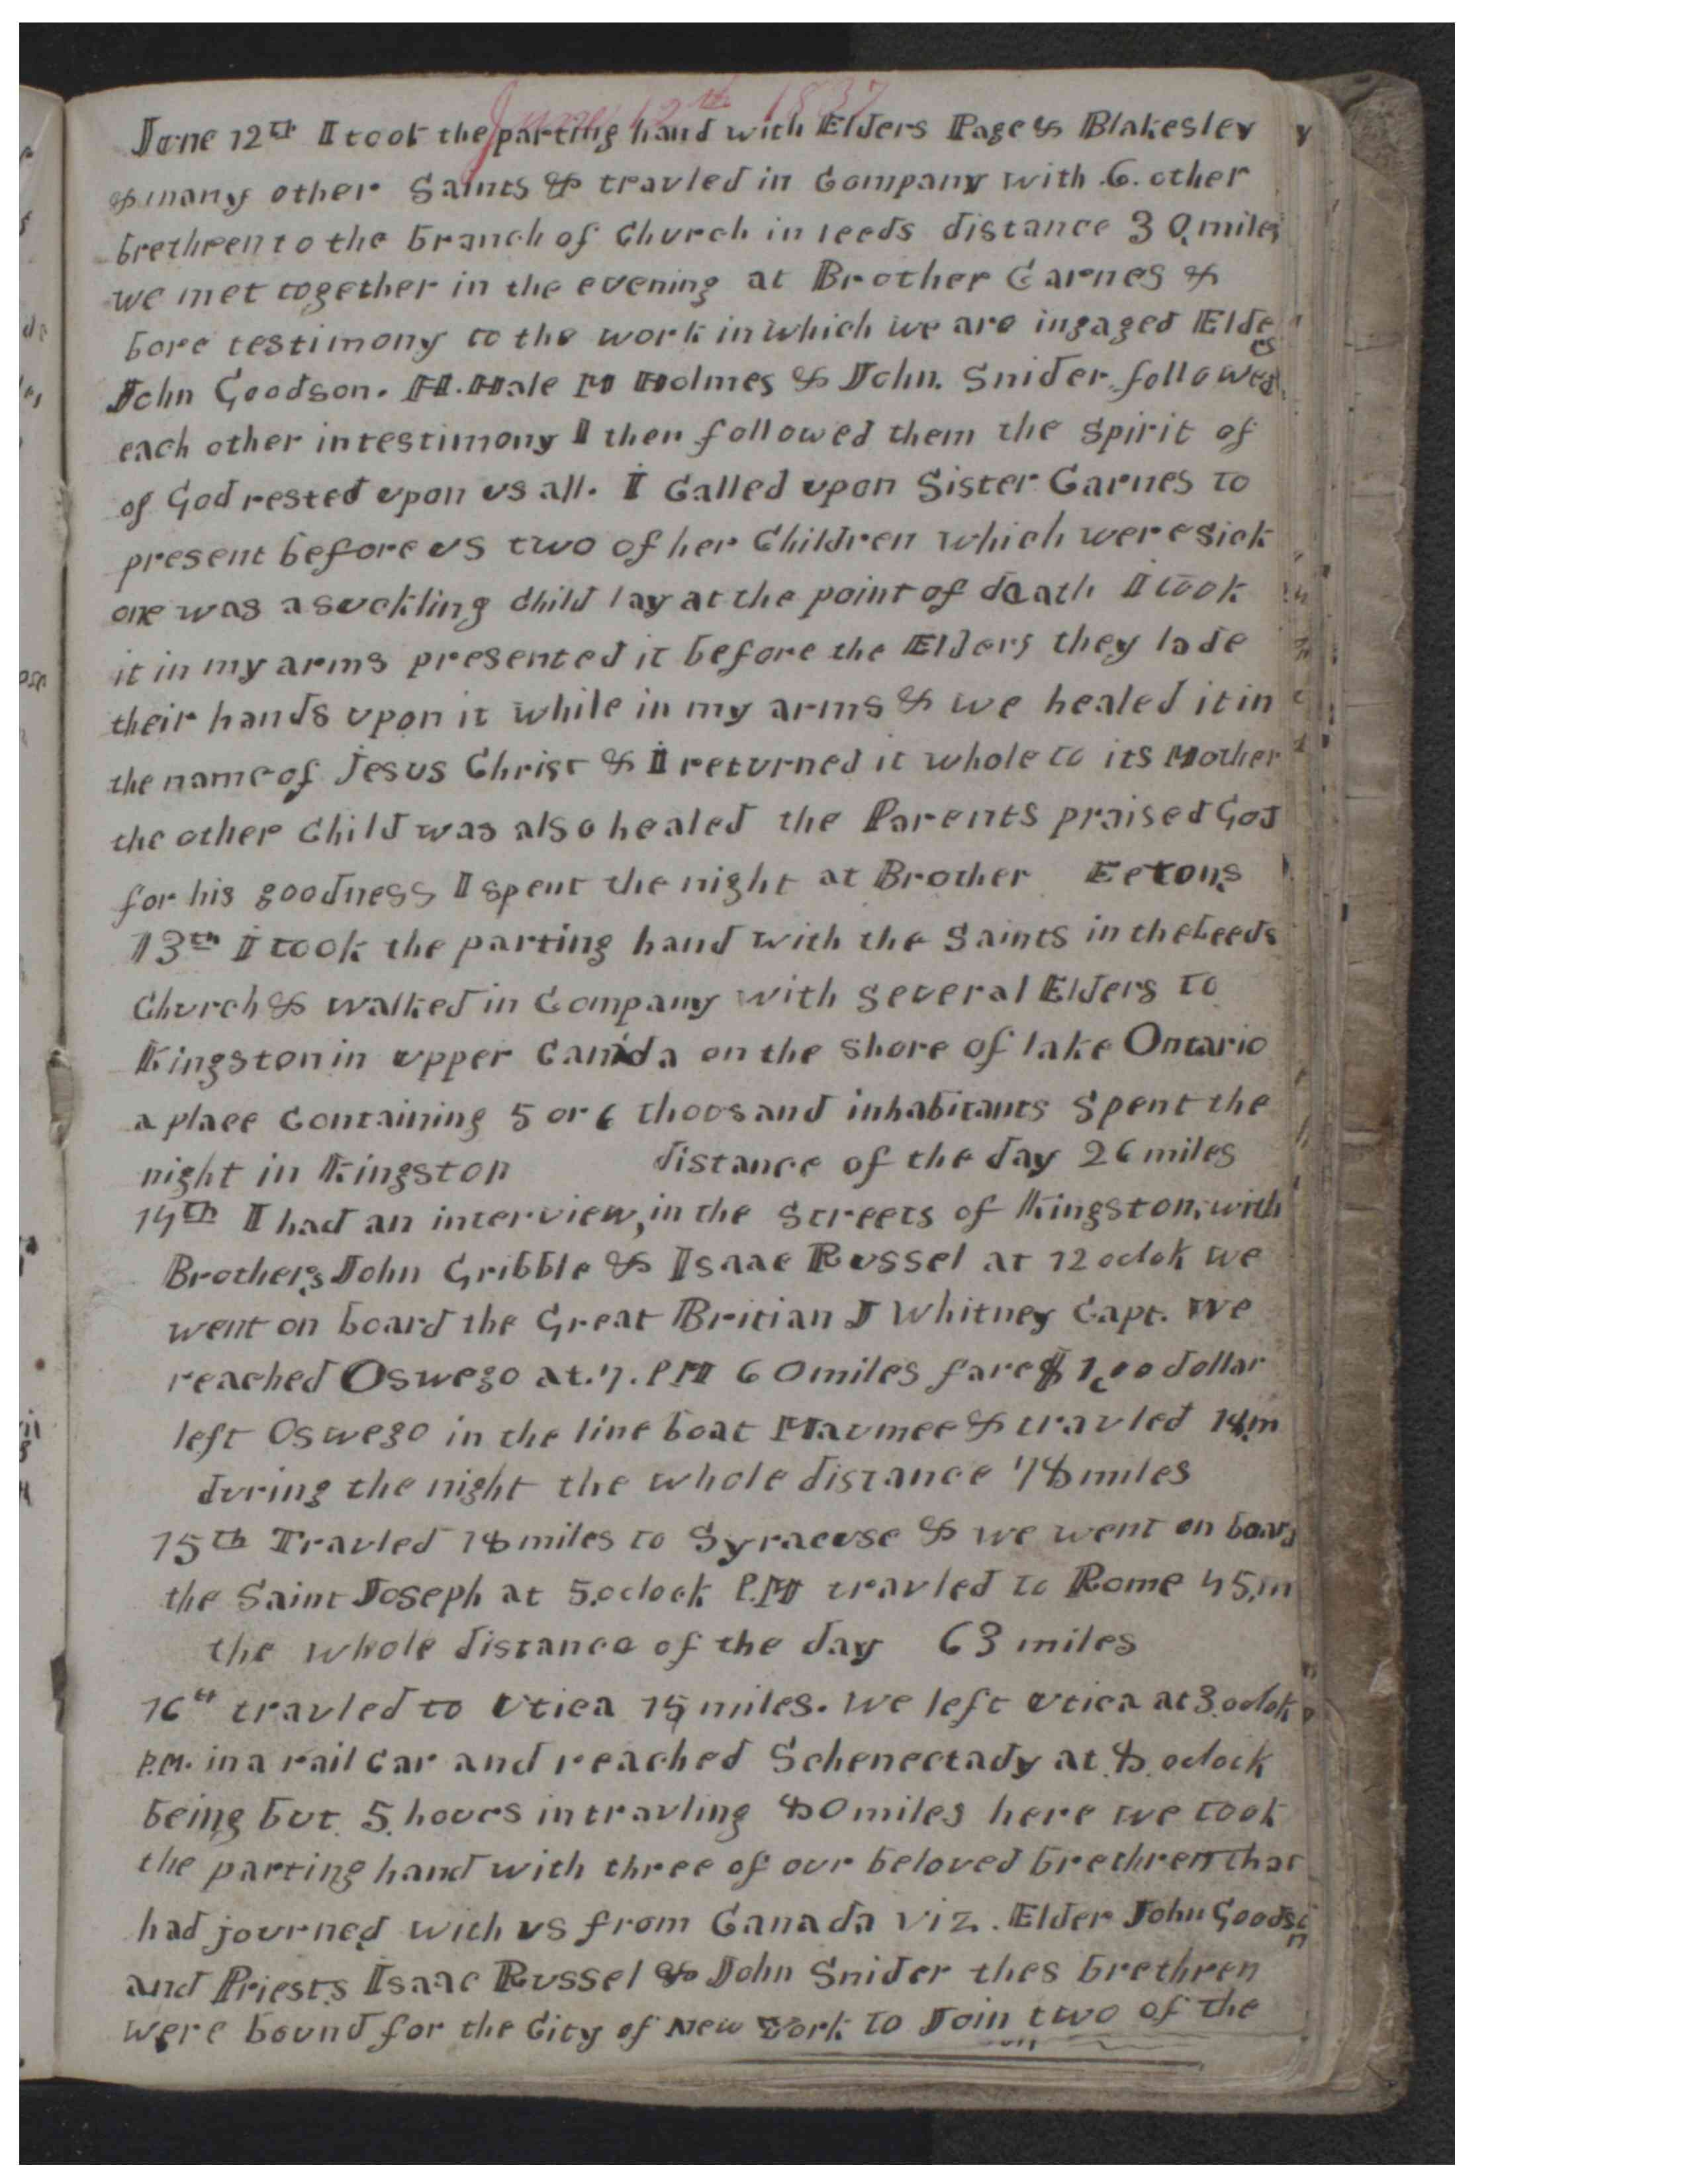 June 12th 1837
June 12th I took the parting hand with Elders Page & Blakesley
& many other Saints & travled in Company with .6. other
brethren to the branch of Church in leeds distance 30, miles
we met together in the evening at Brother Carnes &
bore testimony to the work in which we are ingaged Eldes
John Goodson. H. Hale M Holmes & John. Snider. followed
each other in testimony I then followed them the spirit of
of God rested upon us all. I Called upon Sister Carnes to
present before us two of her Children which were sick
one was a suckling child lay at the point of death I took
it in my arms presented it before the Elders they lade
their hands upon it while in my arms & we healed it in
the name of Jesus Christ & I returned it whole to its Mother
the other Child was also healed the Parents praised God
for his goodness I spent the night at Brother Eetons
13th I took the parting hand with the Saints in the Leeds
Church & walked in Company with several Elders to
Kingston in upper Canida on the shore of lake Ontario
a place Containing 5 or 6 thousand inhabitants Spent the
night in Kingston distance of the day 26 miles
14th I had an interview, in the streets of Kingston, with
Brothers John Gribble & Isaac Russel at 12 oclok we
went on board the Great Britian J Whitney Capt. We
reached Oswego at .7. PM 60 miles fare $1,00 dollar
left Oswego in the line boat Maumee & travled 18,m
during the night the whole distance 78 miles
15th Travled 18 miles to Syracuse & we went on board
the Saint Joseph at 5,oclock P.M travled to Rome 45,m
the whole distance of the day 63 miles
16th travled to Utica 15 miles. We left Utica at 3 oclok
P.M. in a rail Car and reached Schenectady at .8. oclock
being but 5. hours in travling 80 miles here we took
the parting hand with three of our beloved brethren that
had journed with us from Canada viz. Elder John Goodson
and Priests Isaac Russel & John Snider thes brethren
were bound for the City of New York to Join two of the